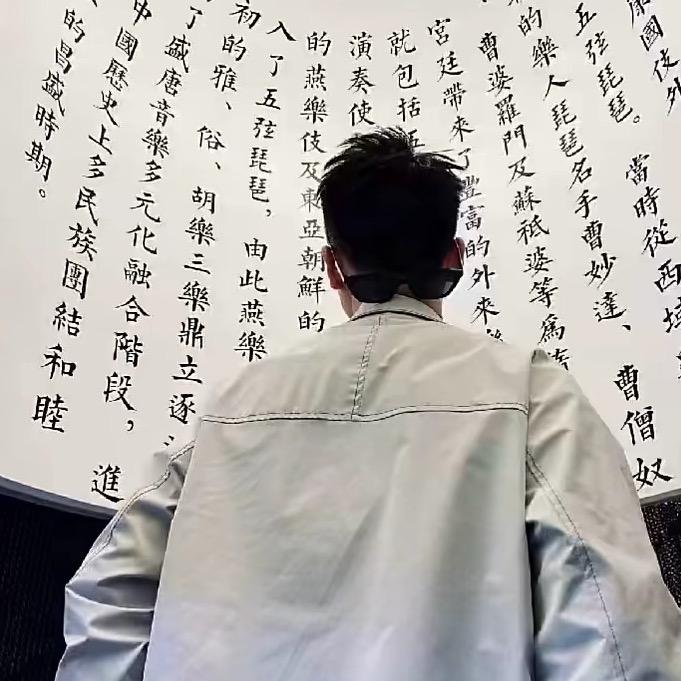 康國伎外
五弦琵琶。當時從西域
的樂人琵琶名手曹妙達、曹僧奴
曹婆羅門及蘇祗婆等為
宮廷帶來了豐富的外來樂
就包括五
演奏使
的燕樂伎及東亞朝鮮的
入了五弦琵琶，由此燕樂
初的雅、俗、胡樂三樂鼎立逐
了盛唐音樂多元化融合階段，進
中國歷史上多民族團結和睦
的昌盛時期。